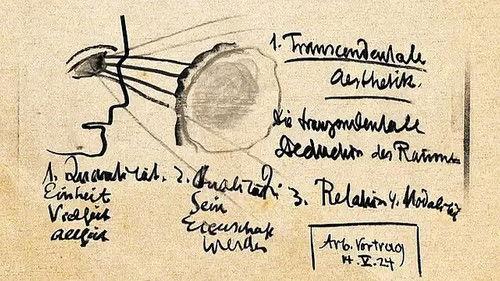 1. Transcendentale
Aesthetik.
Die transzendentale
Deduction des Raumes
1. Quantität. 2. Qualität: 3. Relation 4. Modalität
Einheit
Vielheit
Allheit
Sein
Eigenschaft
Werden
Arb. Vortrag
14. V. 24